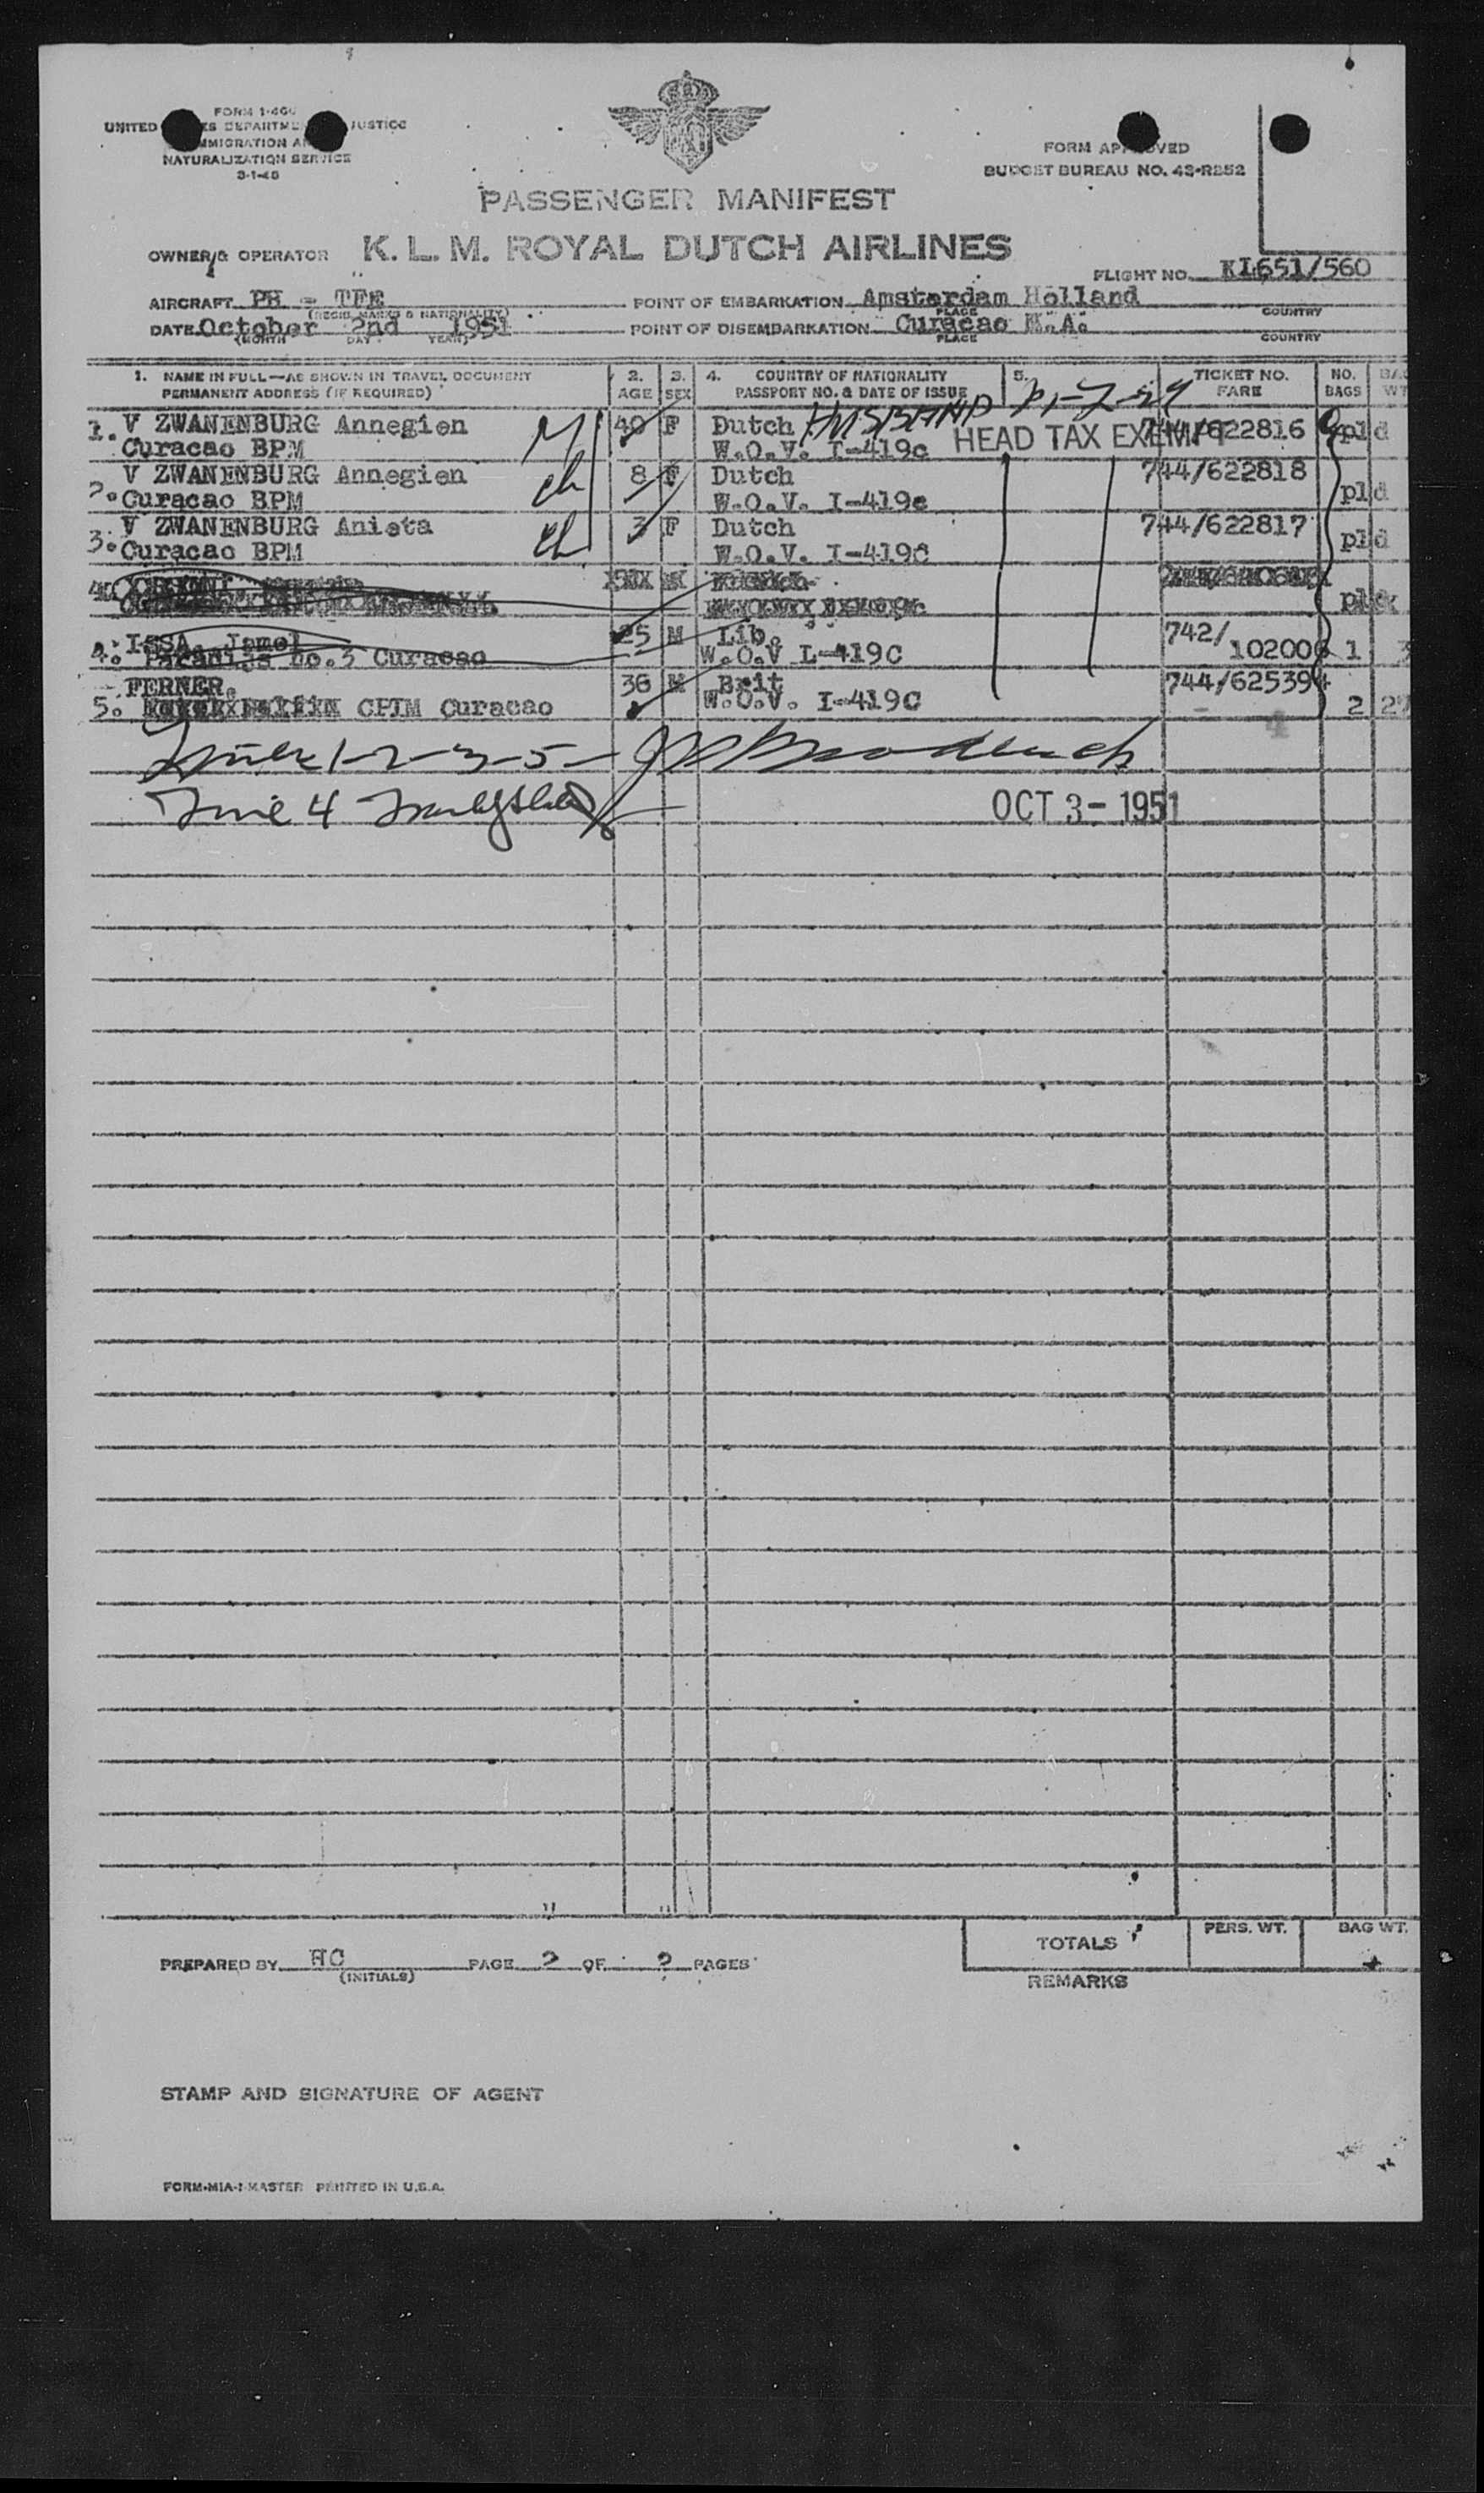 FORM I-466
UNITED STATES DEPARTMENT OF JUSTICE
IMMIGRATION AND
NATURALIZATION SERVICE
3-1-48
FORM APPROVED
BUDGET BUREAU NO. 43-R252
PASSENGER MANIFEST
OWNER & OPERATOR K. L. M. ROYAL DUTCH AIRLINES
FLIGHT NO. KL651/560
AIRCRAFT PH - TFE POINT OF EMBARKATION Amsterdam Holland
(REGIS. MARKS & NATIONALITY) PLACE COUNTRY
DATE October 2nd 1951 POINT OF DISEMBARKATION Curacao N.A.
(MONTH DAY YEAR) PLACE COUNTRY
1. NAME IN FULL—AS SHOWN IN TRAVEL DOCUMENT 2. 3. 4. COUNTRY OF NATIONALITY 5. TICKET NO. NO.
PERMANENT ADDRESS (IF REQUIRED) AGE SEX PASSPORT NO. & DATE OF ISSUE FARE BAGS
HUSBAND
1. V ZWANENBURG Annegien M 40 F Dutch HEAD TAX EXEMPT 744/622816 pld
Curacao BPM W.O.V. I-419c
V ZWANENBURG Annegien ch 8 F Dutch 744/622818
2. Curacao BPM W.O.V. I-419c pld
V ZWANENBURG Anieta ch 3 F Dutch 744/622817
3. Curacao BPM W.O.V. I-419C pld
ISSA, Jamel 25 M Lib. 742/
4. no.3 Curacao W.O.V L-419C 102006 1
FERNER, 36 M Brit 744/625394
5. CPIM Curacao W.O.V. I-419C 2
1-2-3-5-
Line 4
OCT 3 - 1951
TOTALS PERS. WT. BAG WT.
PREPARED BY HC PAGE 2 OF 2 PAGES
(INITIALS)
REMARKS
STAMP AND SIGNATURE OF AGENT
FORM-MIA-1-MASTER PRINTED IN U.S.A.